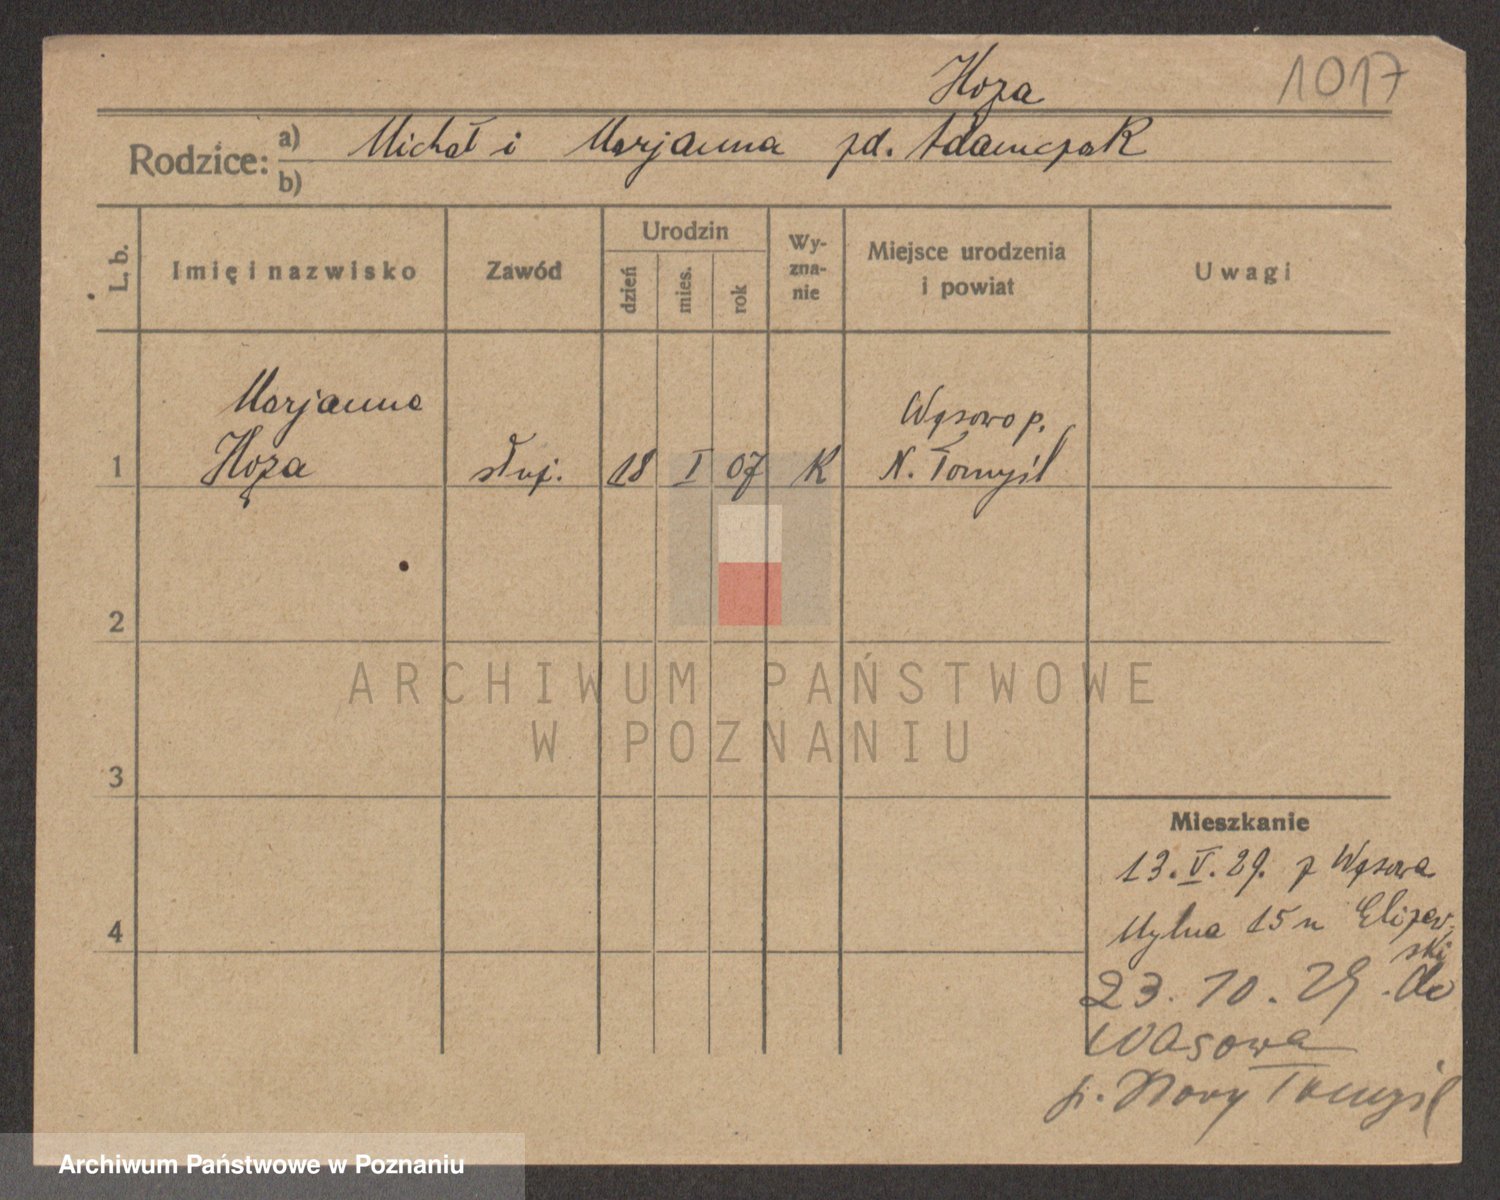 Hoza
1017
Rodzice: a) Michał i Marjanna zd. Adamczak
b)
L. b. Imię i nazwisko Zawód Urodzin dzień mies. rok Wy-zna-nie Miejsce urodzenia i powiat Uwagi
Marjanna Wąsowo p.
1 Hoza służ. 18 I 07 K N. Tomyśl
2
ARCHIWUM PAŃSTWOWE
W POZNANIU
3
Mieszkanie
13. V. 29. z Wąsowa
Mylna 15 u Elizew-
ski
4
23. 10. 29. do
Wąsowa
p. Nowy Tomyśl
Archiwum Państwowe w Poznaniu